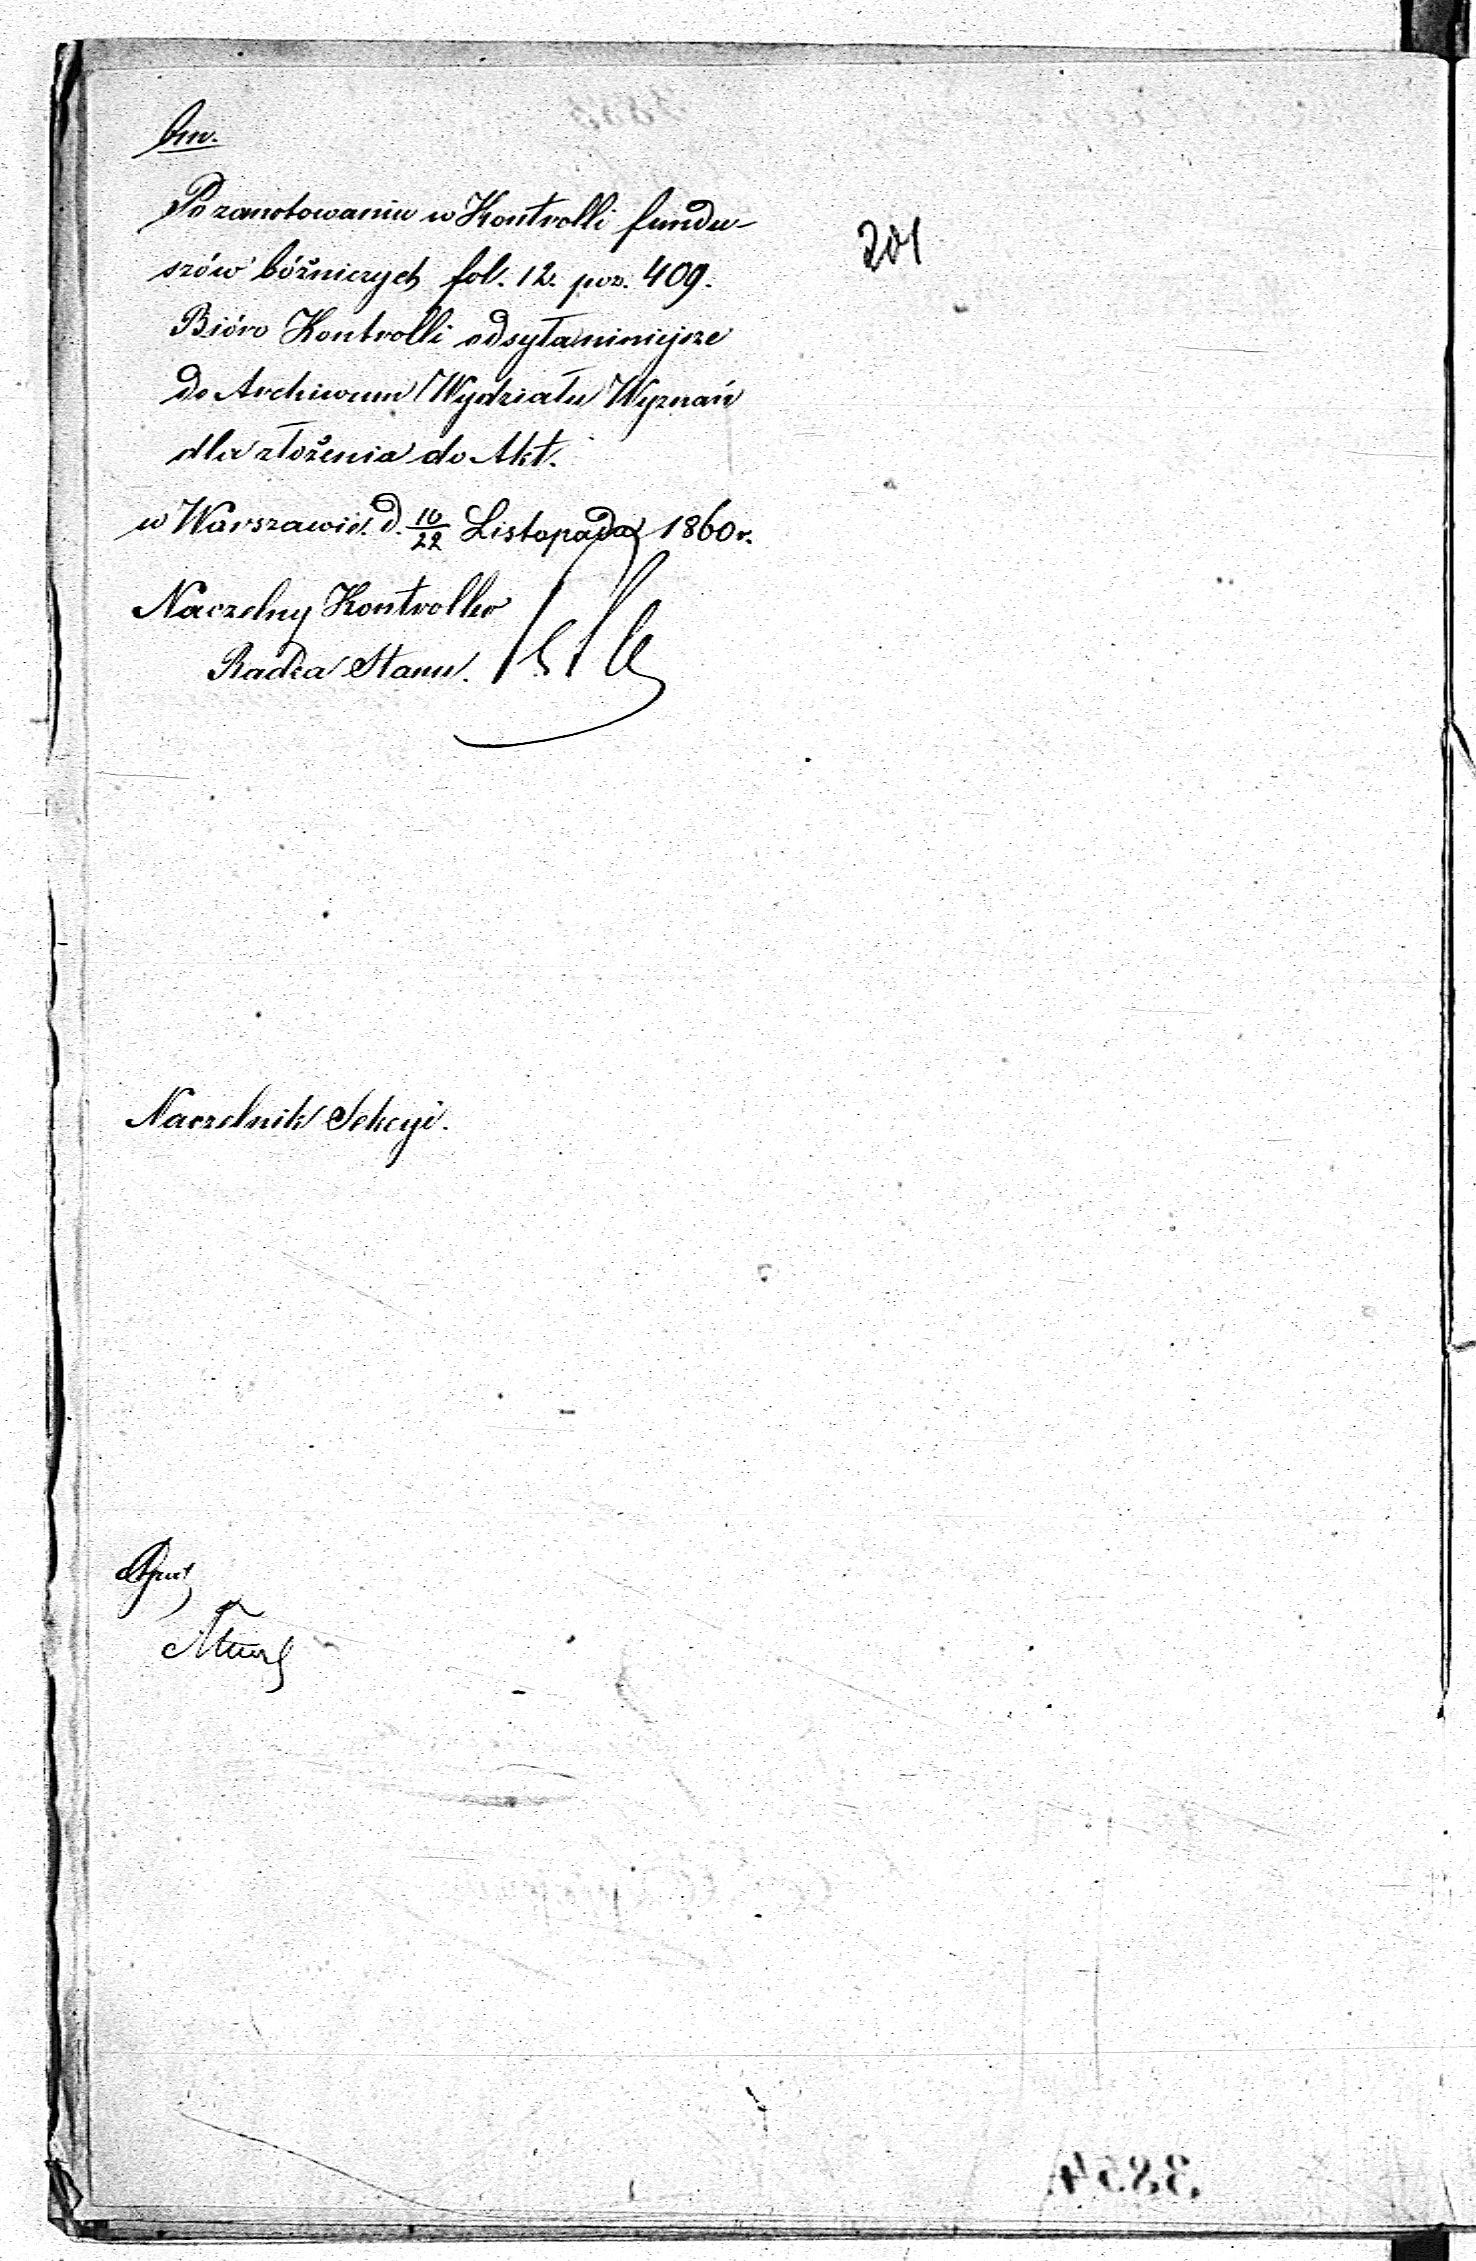 bm.
Po zanotowaniu w Kontrolli fundu-
szów bóżniczych fol. 12. poz. 409.
201
Bióro Kontrolli odsyła niniejsze
do Archiwum Wydziału Wyznań
dla złożenia do Akt.
w Warszawie d. 10/22 Listopada 1860 r.
Naczelny Kontroller
Radca Stanu.
Naczelnik Sekcyi.
3854